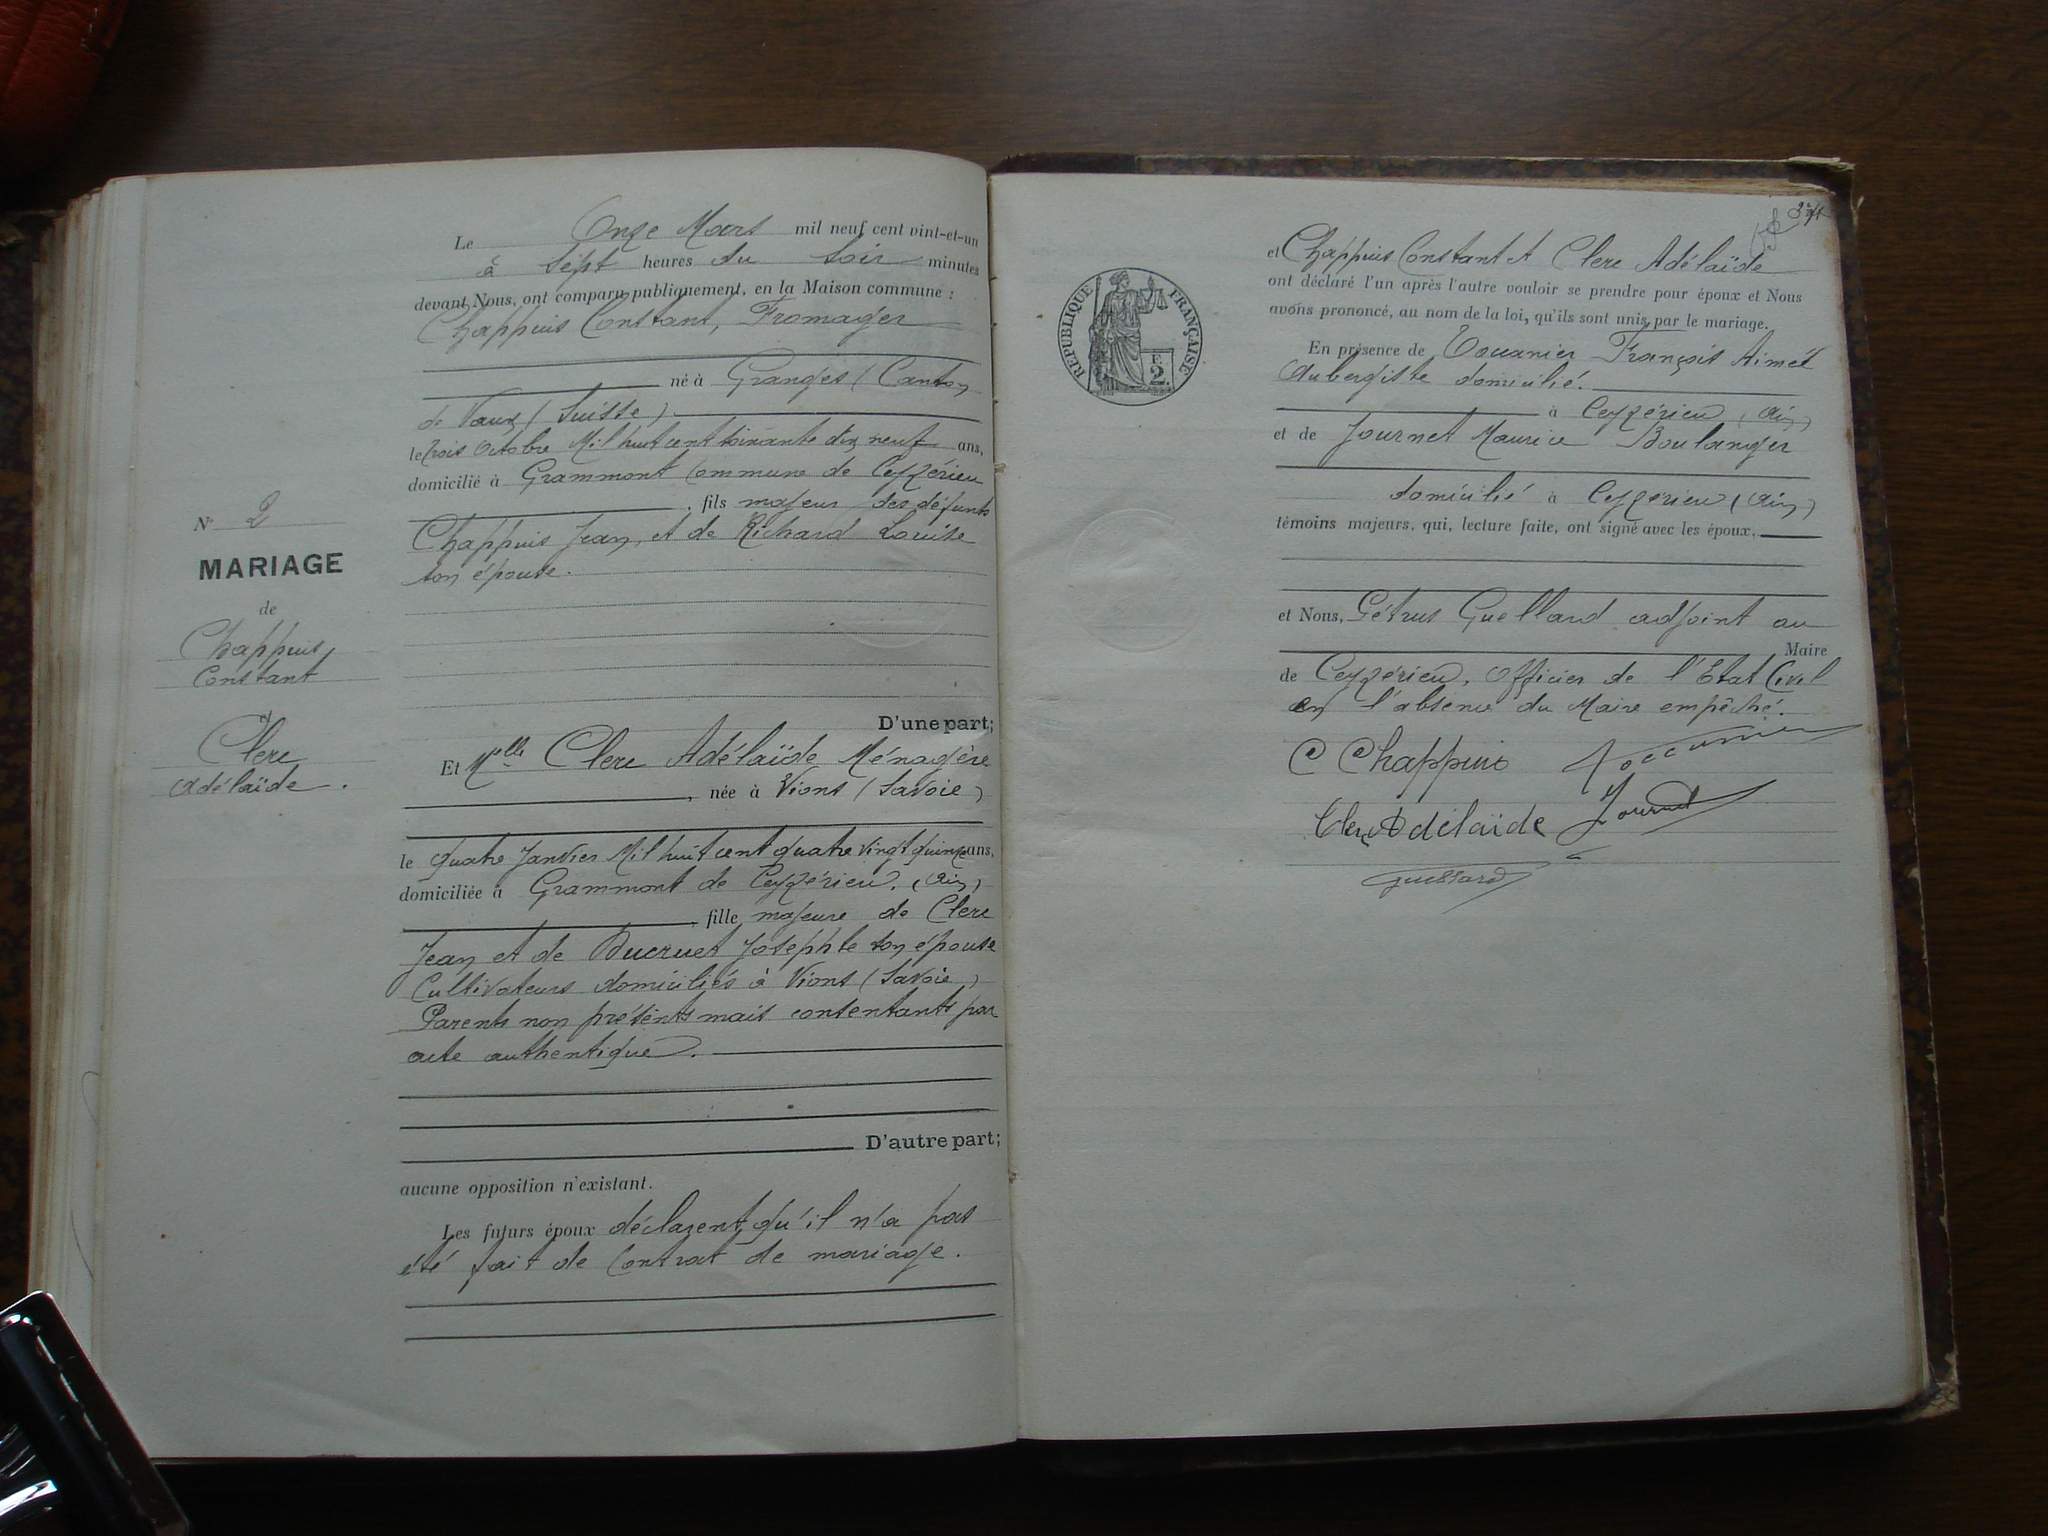 Le Onze Mars mil neuf cent vint-et-un
à sept heures du soir minutes
devant Nous, ont comparu publiquement, en la Maison commune :
Chappuis Constant, Fromager
né à Granges (Canton
de Vaux (Suisse)
le trois Octobre Mil huit cent soixante dix neuf ans,
domicilié à Grammont Commune de Ceyzérieu
, fils majeur des défunts
Chappuis Jean, et de Richard Louise
son épouse.
D'une part;
N° 2
MARIAGE
de
Chappuis
Constant
et
Clerc
Adélaïde.
Et Melle Clerc Adélaïde Ménagère
, née à Vions (Savoie)
le quatre Janvier Mil huit cent quatre vingt quinze ans,
domiciliée à Grammont de Ceyzérieu. (Ain)
, fille majeure de Clerc
Jean et de Ducruet Josephte son épouse
Cultivateurs domiciliés à Vions (Savoie)
Parents non présents mais consentants par
acte authentique.
D'autre part;
aucune opposition n'existant.
Les futurs époux déclarent qu'il n'a pas
été fait de Contrat de mariage.
RÉPUBLIQUE FRANÇAISE
2
et Chappuis Constant et Clerc Adélaïde
ont déclaré l'un après l'autre vouloir se prendre pour époux et Nous
avons prononcé, au nom de la loi, qu'ils sont unis par le mariage.
En présence de François Aimé
Aubergiste domicilié.
à Ceyzérieu (Ain)
et de Journet Maurice Boulanger
domicilié à Ceyzérieu (Ain)
témoins majeurs, qui, lecture faite, ont signé avec les époux,
et Nous, Pétrus Guellard adjoint au
Maire
de Ceyzérieu, Officier de l'Etat Civil
en l'absence du Maire empêché.
C Chappuis
Clerc Adélaïde Journet